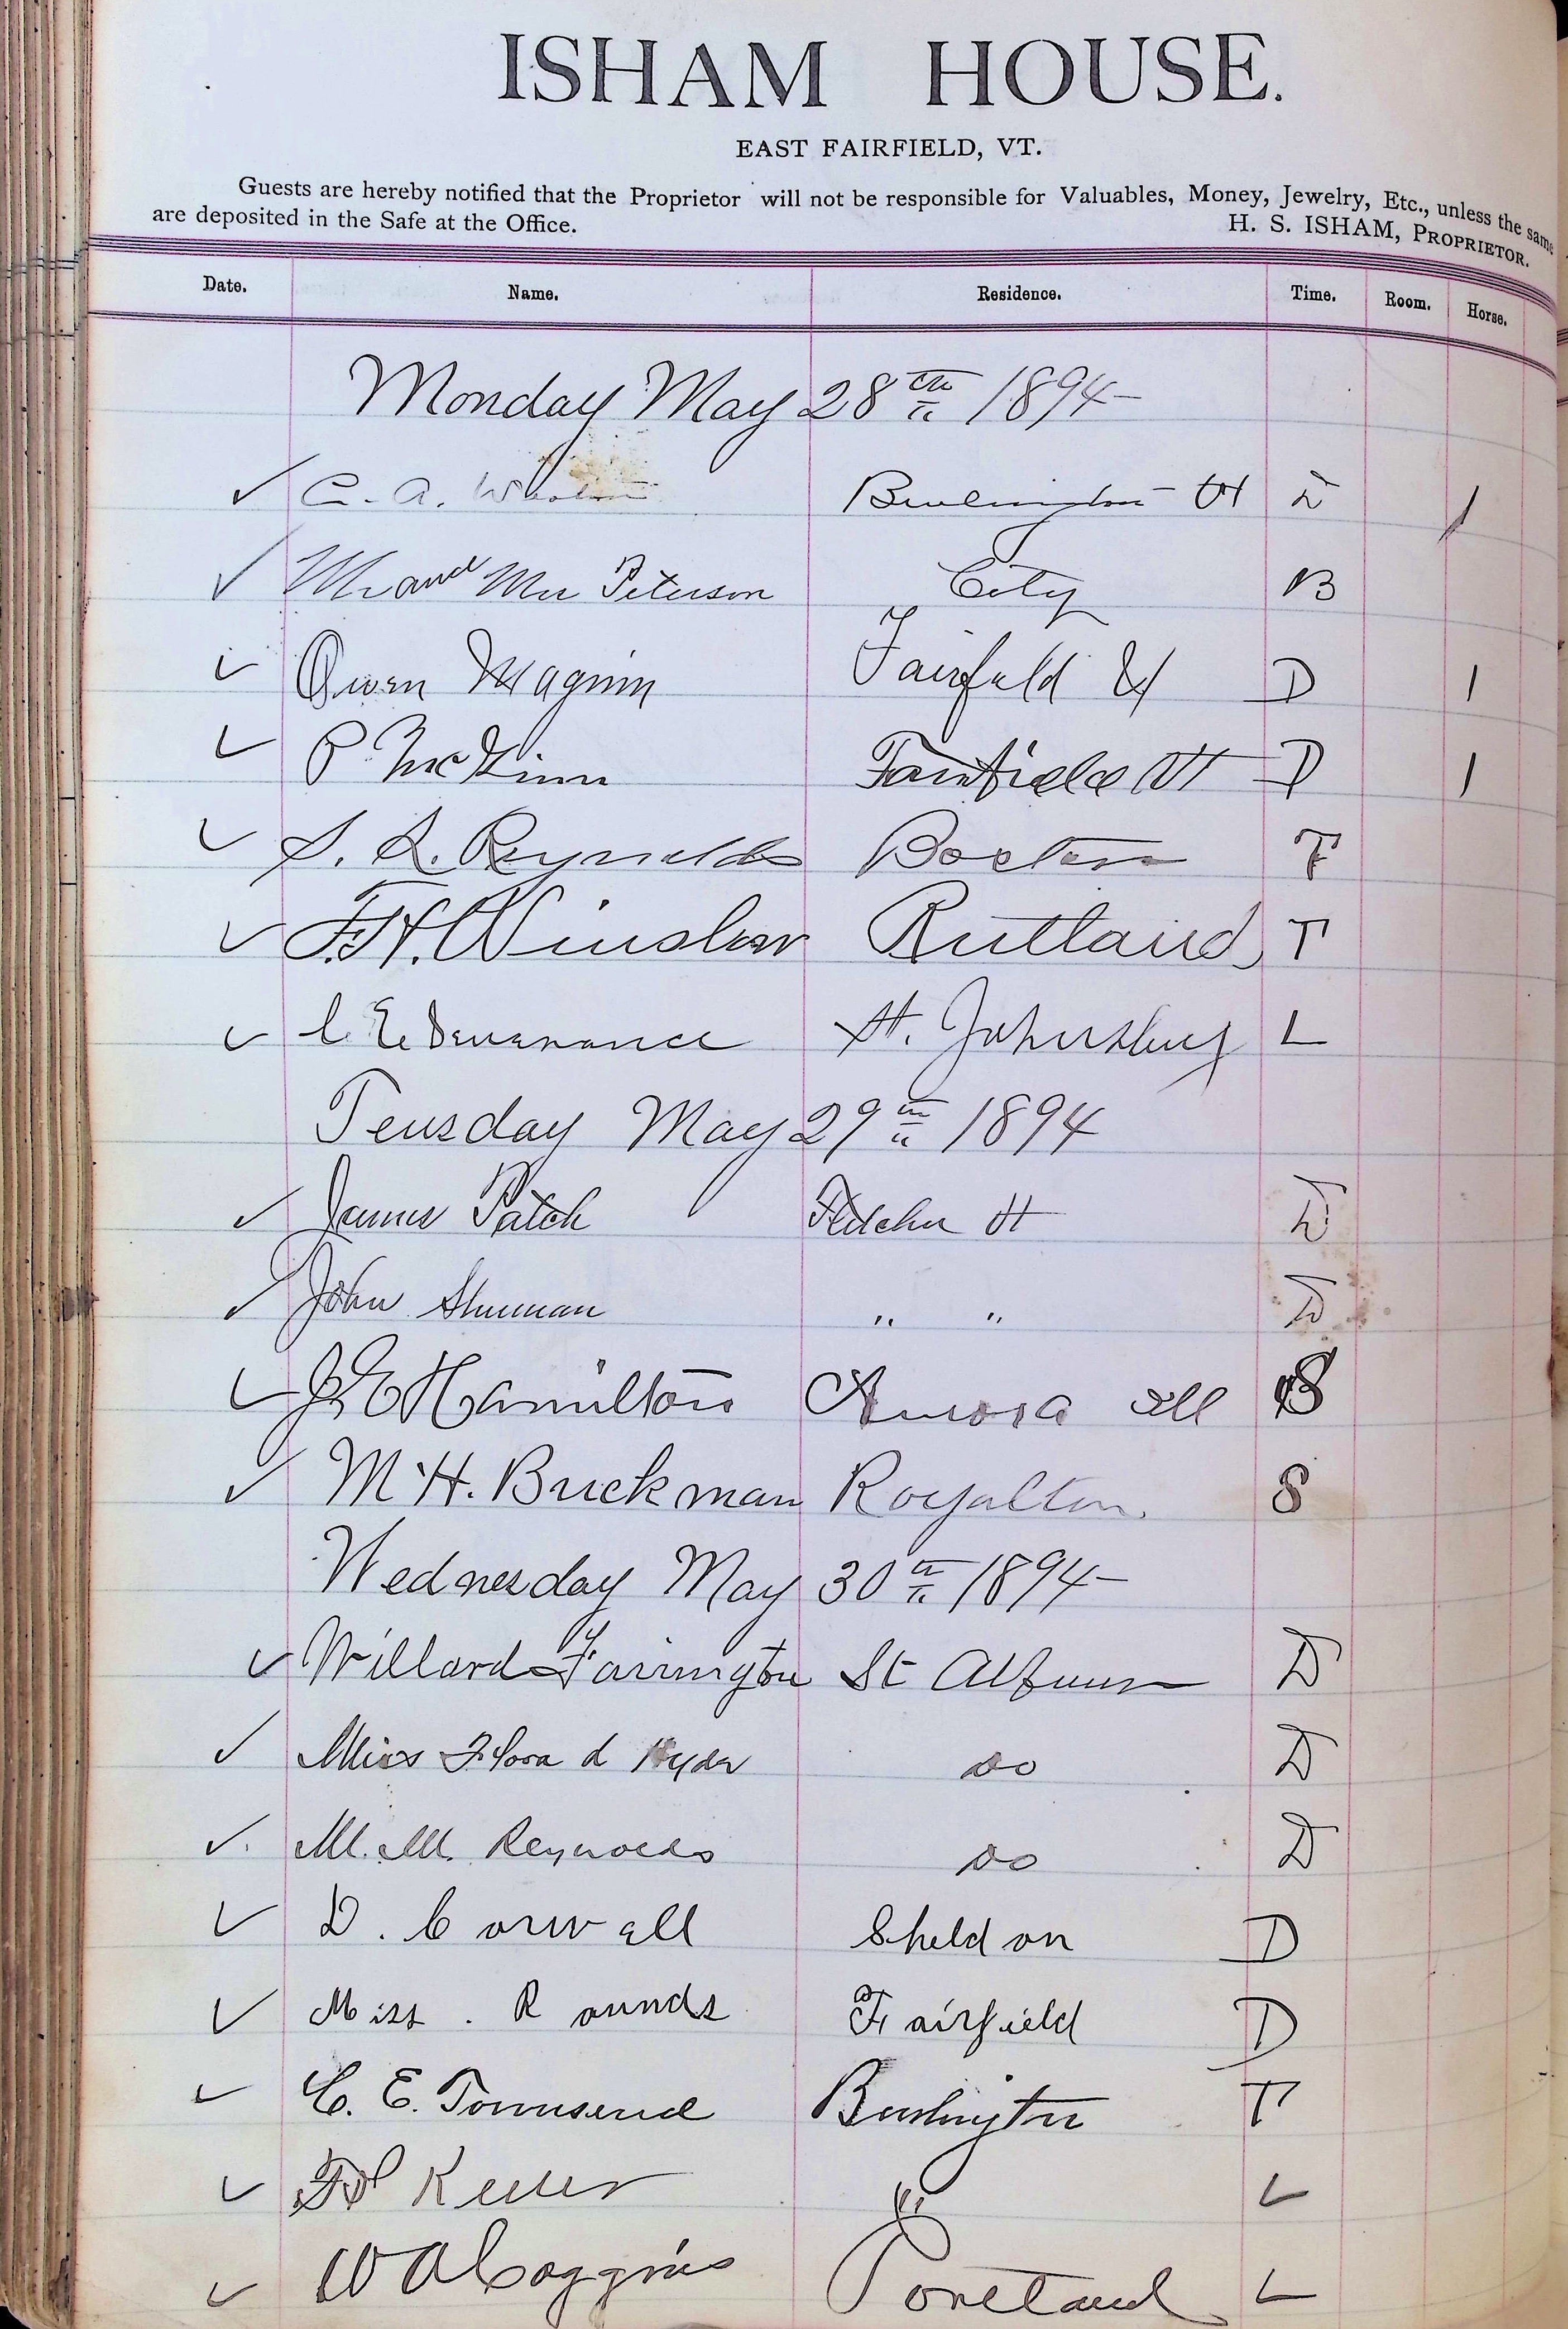 ISHAM HOUSE.
EAST FAIRFIELD, VT.
Guests are hereby notified that the Proprietor will not be responsible for Valuables, Money, Jewelry, Etc., unless the same
are deposited in the Safe at the Office.
H. S. ISHAM, PROPRIETOR.
Date. Name. Residence. Time. Room. Horse.
Monday May 28th 1894
C. A. Burlington Vt D 1
Mr and Mrs Peterson City B
Owen Maginn Fairfield Vt D 1
P McGinn Fairfield Vt D 1
S. R. Reynolds Boston T
F. H. Winslow Rutland T
C E Severance St. Johnsbury L
Teusday May 29th 1894
James Patch Fletcher Vt D
John Shuman " " D
J E Hamilton Aurora Ill S
M H. Brickman Royalton. S
Wednesday May 30th 1894
Willard Farrington St Albans D
Miss Flora d Hyde do D
M. M. Reynolds do D
D. Corwall Sheldon D
Miss. Rounds Fairfield D
C. E. Townsend Burlington T
" L
W A Coggins Portland L